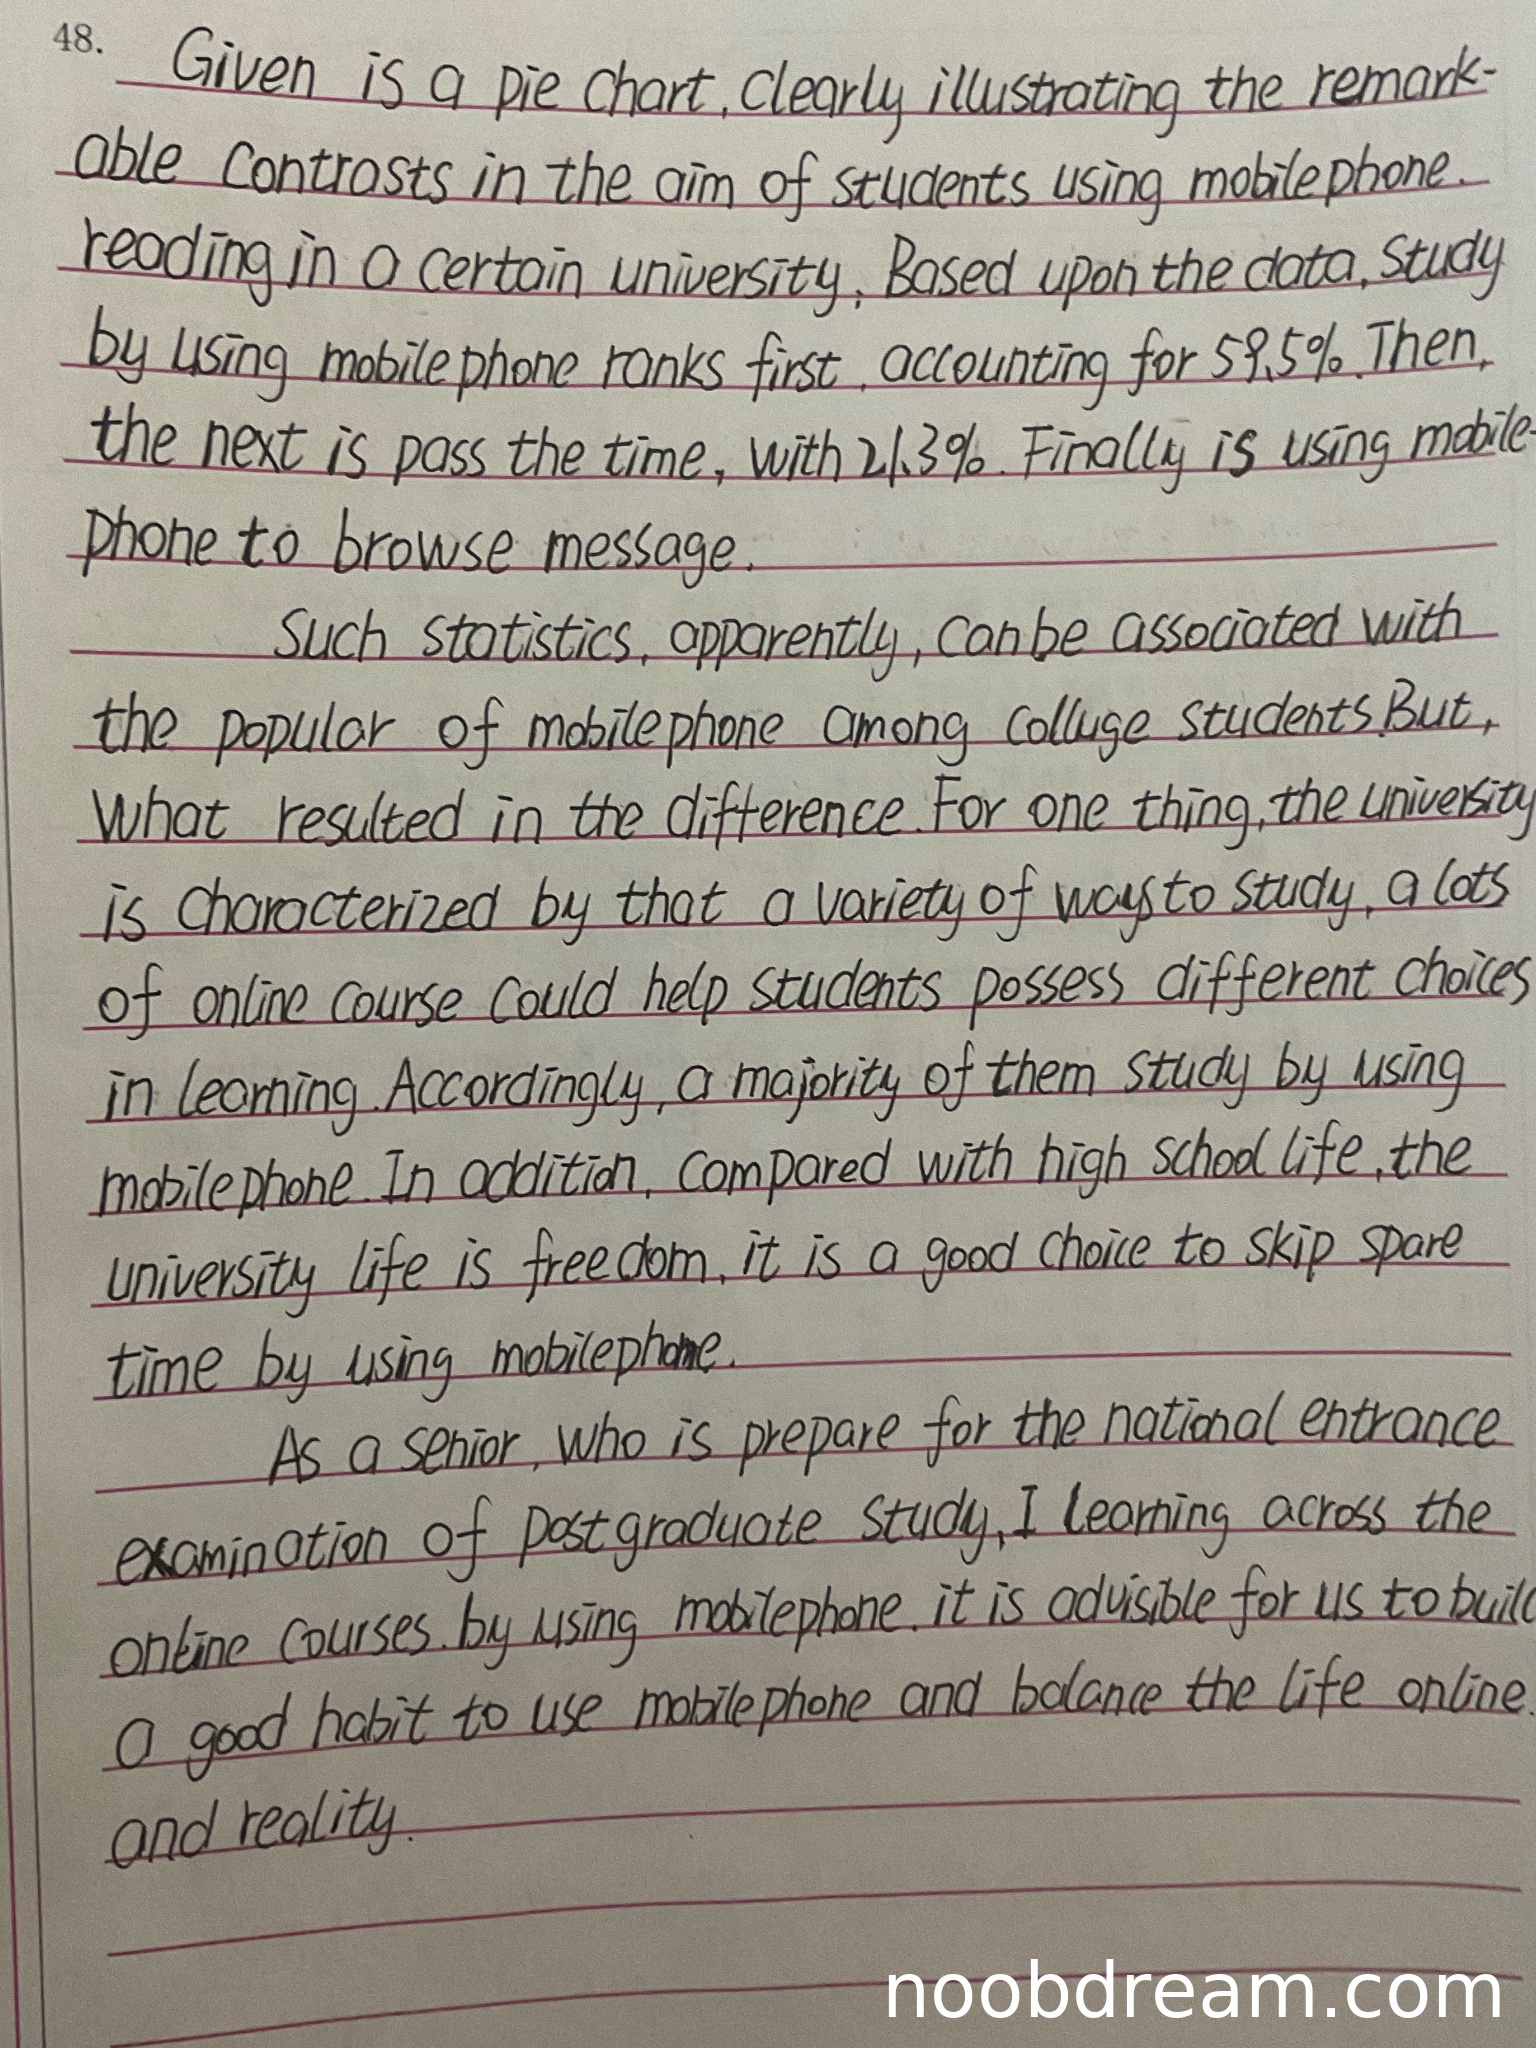 48. Given is a pie chart, clearly illustrating the remark-
able contrasts in the aim of students using mobilephone.
reading in a certain university. Based upon the data, study
by using mobilephone ranks first, accounting for 59.5%. Then,
the next is pass the time, with 21.3%. Finally is using mobile-
phone to browse message.
Such statistics, apparently, can be associated with
the popular of mobilephone among colluge students. But,
what resulted in the difference. For one thing, the university
is characterized by that a variety of ways to study, a lots
of online course could help students possess different choices
in learning. Accordingly, a majority of them study by using
mobilephone. In addition, compared with high school life, the
university life is freedom, it is a good choice to skip spare
time by using mobilephone.
As a senior, who is prepare for the national entrance
examination of postgraduate study, I learning across the
online courses. by using mobilephone. it is advisible for us to build
a good habit to use mobilephone and balance the life online.
and reality.
noobdream.com